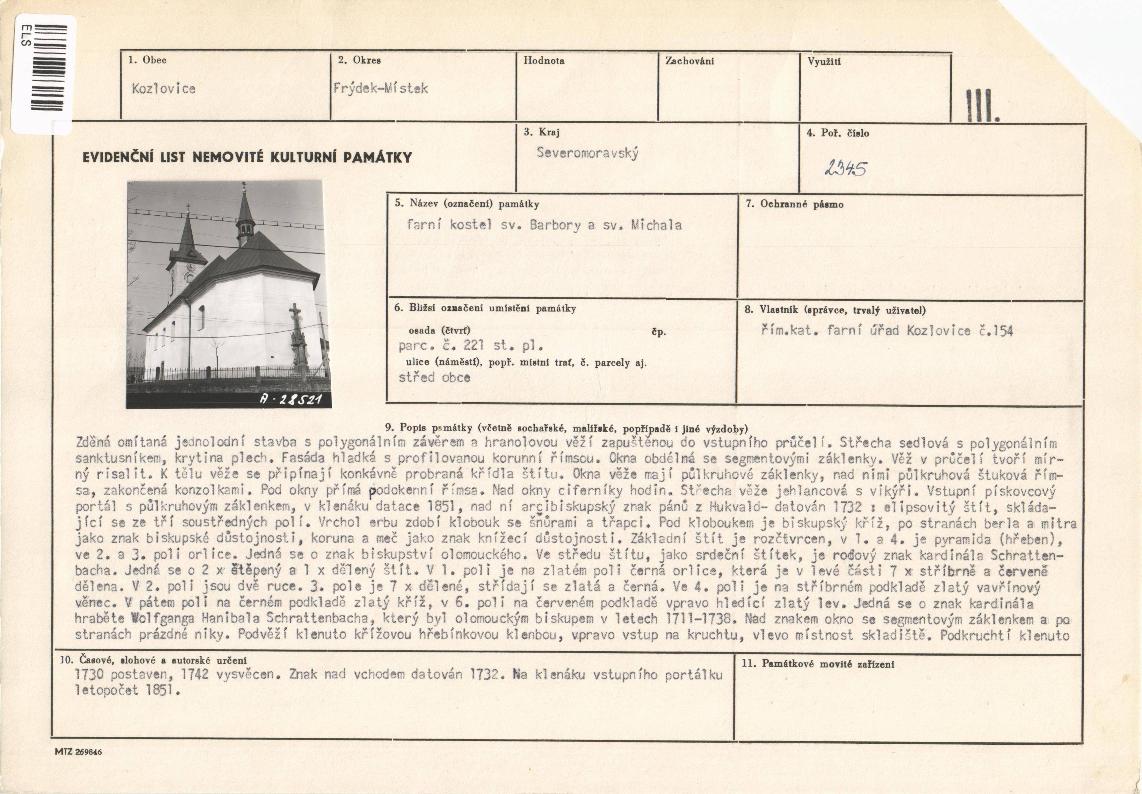 ELS
1. Obec
Kozlovice
2. Okres
Frýdek-Místek
Hodnota
Zachování
Využití
III.
EVIDENČNÍ LIST NEMOVITÉ KULTURNÍ PAMÁTKY
3. Kraj
Severomoravský
4. Poř. číslo
2345
5. Název (označení) památky
farní kostel sv. Barbory a sv. Michala
7. Ochranné pásmo
6. Bližší označení umístění památky
osada (čtvrť) čp.
parc. č. 221 st. pl.
ulice (náměstí), popř. místní trať, č. parcely aj.
střed obce
8. Vlastník (správce, trvalý uživatel)
řím.kat. farní úřad Kozlovice č.154
A-28521
9. Popis památky (včetně sochařské, malířské, popřípadě i jiné výzdoby)
Zděná omítaná jednolodní stavba s polygonálním závěrem a hranolovou věží zapuštěnou do vstupního průčelí. Střecha sedlová s polygonálním
sanktusníkem, krytina plech. Fasáda hladká s profilovanou korunní římsou. Okna obdélná se segmentovými záklenky. Věž v průčelí tvoří mír-
ný risalit. K tělu věže se připínají konkávně probraná křídla štítu. Okna věže mají půlkruhové záklenky, nad nimi půlkruhová štuková řím-
sa, zakončená konzolkami. Pod okny přímá podokenní římsa. Nad okny ciferníky hodin. Střecha věže jehlancová s vikýři. Vstupní pískovcový
portál s půlkruhovým záklenkem, v klenáku datace 1851, nad ní arcibiskupský znak pánů z Hukvald- datován 1732 : elipsovitý štít, skláda-
jící se ze tří soustředných polí. Vrchol erbu zdobí klobouk se šnůrami a třapci. Pod kloboukem je biskupský kříž, po stranách berla a mitra
jako znak biskupské důstojnosti, koruna a meč jako znak knížecí důstojnosti. Základní štít je rozčtvrcen, v 1. a 4. je pyramida (hřeben),
ve 2. a 3. poli orlice. Jedná se o znak biskupství olomouckého. Ve středu štítu, jako srdeční štítek, je rodový znak kardinála Schratten-
bacha. Jedná se o 2 x štěpený a 1 x dělený štít. V 1. poli je na zlatém poli černá orlice, která je v levé části 7 x stříbrně a červeně
dělena. V 2. poli jsou dvě ruce. 3. pole je 7 x dělené, střídají se zlatá a černá. Ve 4. poli je na stříbrném podkladě zlatý vavřínový
věnec. V pátem poli na černém podkladě zlatý kříž, v 6. poli na červeném podkladě vpravo hledící zlatý lev. Jedná se o znak kardinála
hraběte Wolfganga Hanibala Schrattenbacha, který byl olomouckým biskupem v letech 1711-1738. Nad znakem okno se segmentovým záklenkem a po
stranách prázdné niky. Podvěží klenuto křížovou hřebínkovou klenbou, vpravo vstup na kruchtu, vlevo místnost skladiště. Podkruchtí klenuto
10. Časové, slohové a autorské určení
1730 postaven, 1742 vysvěcen. Znak nad vchodem datován 1732. Na klenáku vstupního portálku
letopočet 1851.
11. Památkové movité zařízení
MTZ 269846